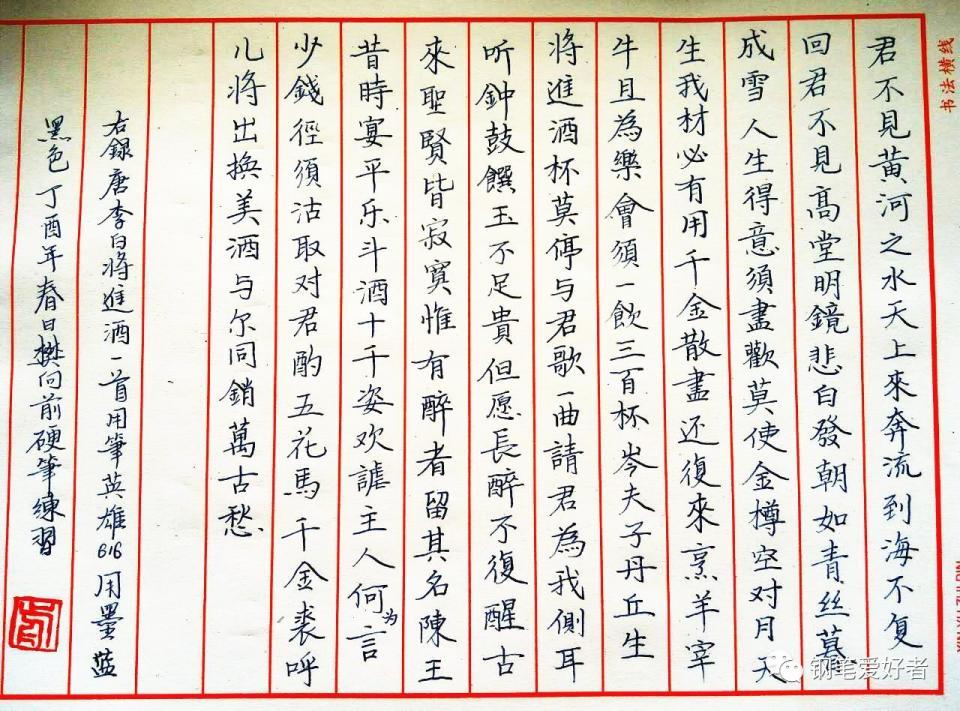 君不見黃河之水天上來奔流到海不复
回君不見高堂明鏡悲白發朝如青丝暮
成雪人生得意須盡歡莫使金樽空对月天
生我材必有用千金散盡还復來烹羊宰
牛且為樂會須一飲三百杯岑夫子丹丘生
將進酒杯莫停与君歌一曲請君為我側耳
听鈡鼓饌玉不足貴但愿長醉不復醒古
來聖賢皆寂寞惟有醉者留其名陳王
昔時宴平乐斗酒十千姿欢謔主人何为言
少錢徑須沽取对君酌五花馬千金裘呼
儿將出換美酒与尔同銷萬古愁
右録唐李白將進酒一首用筆英雄616用墨蓝
黑色丁酉年春日樊向前硬筆練習
书法横线
钢笔爱好者